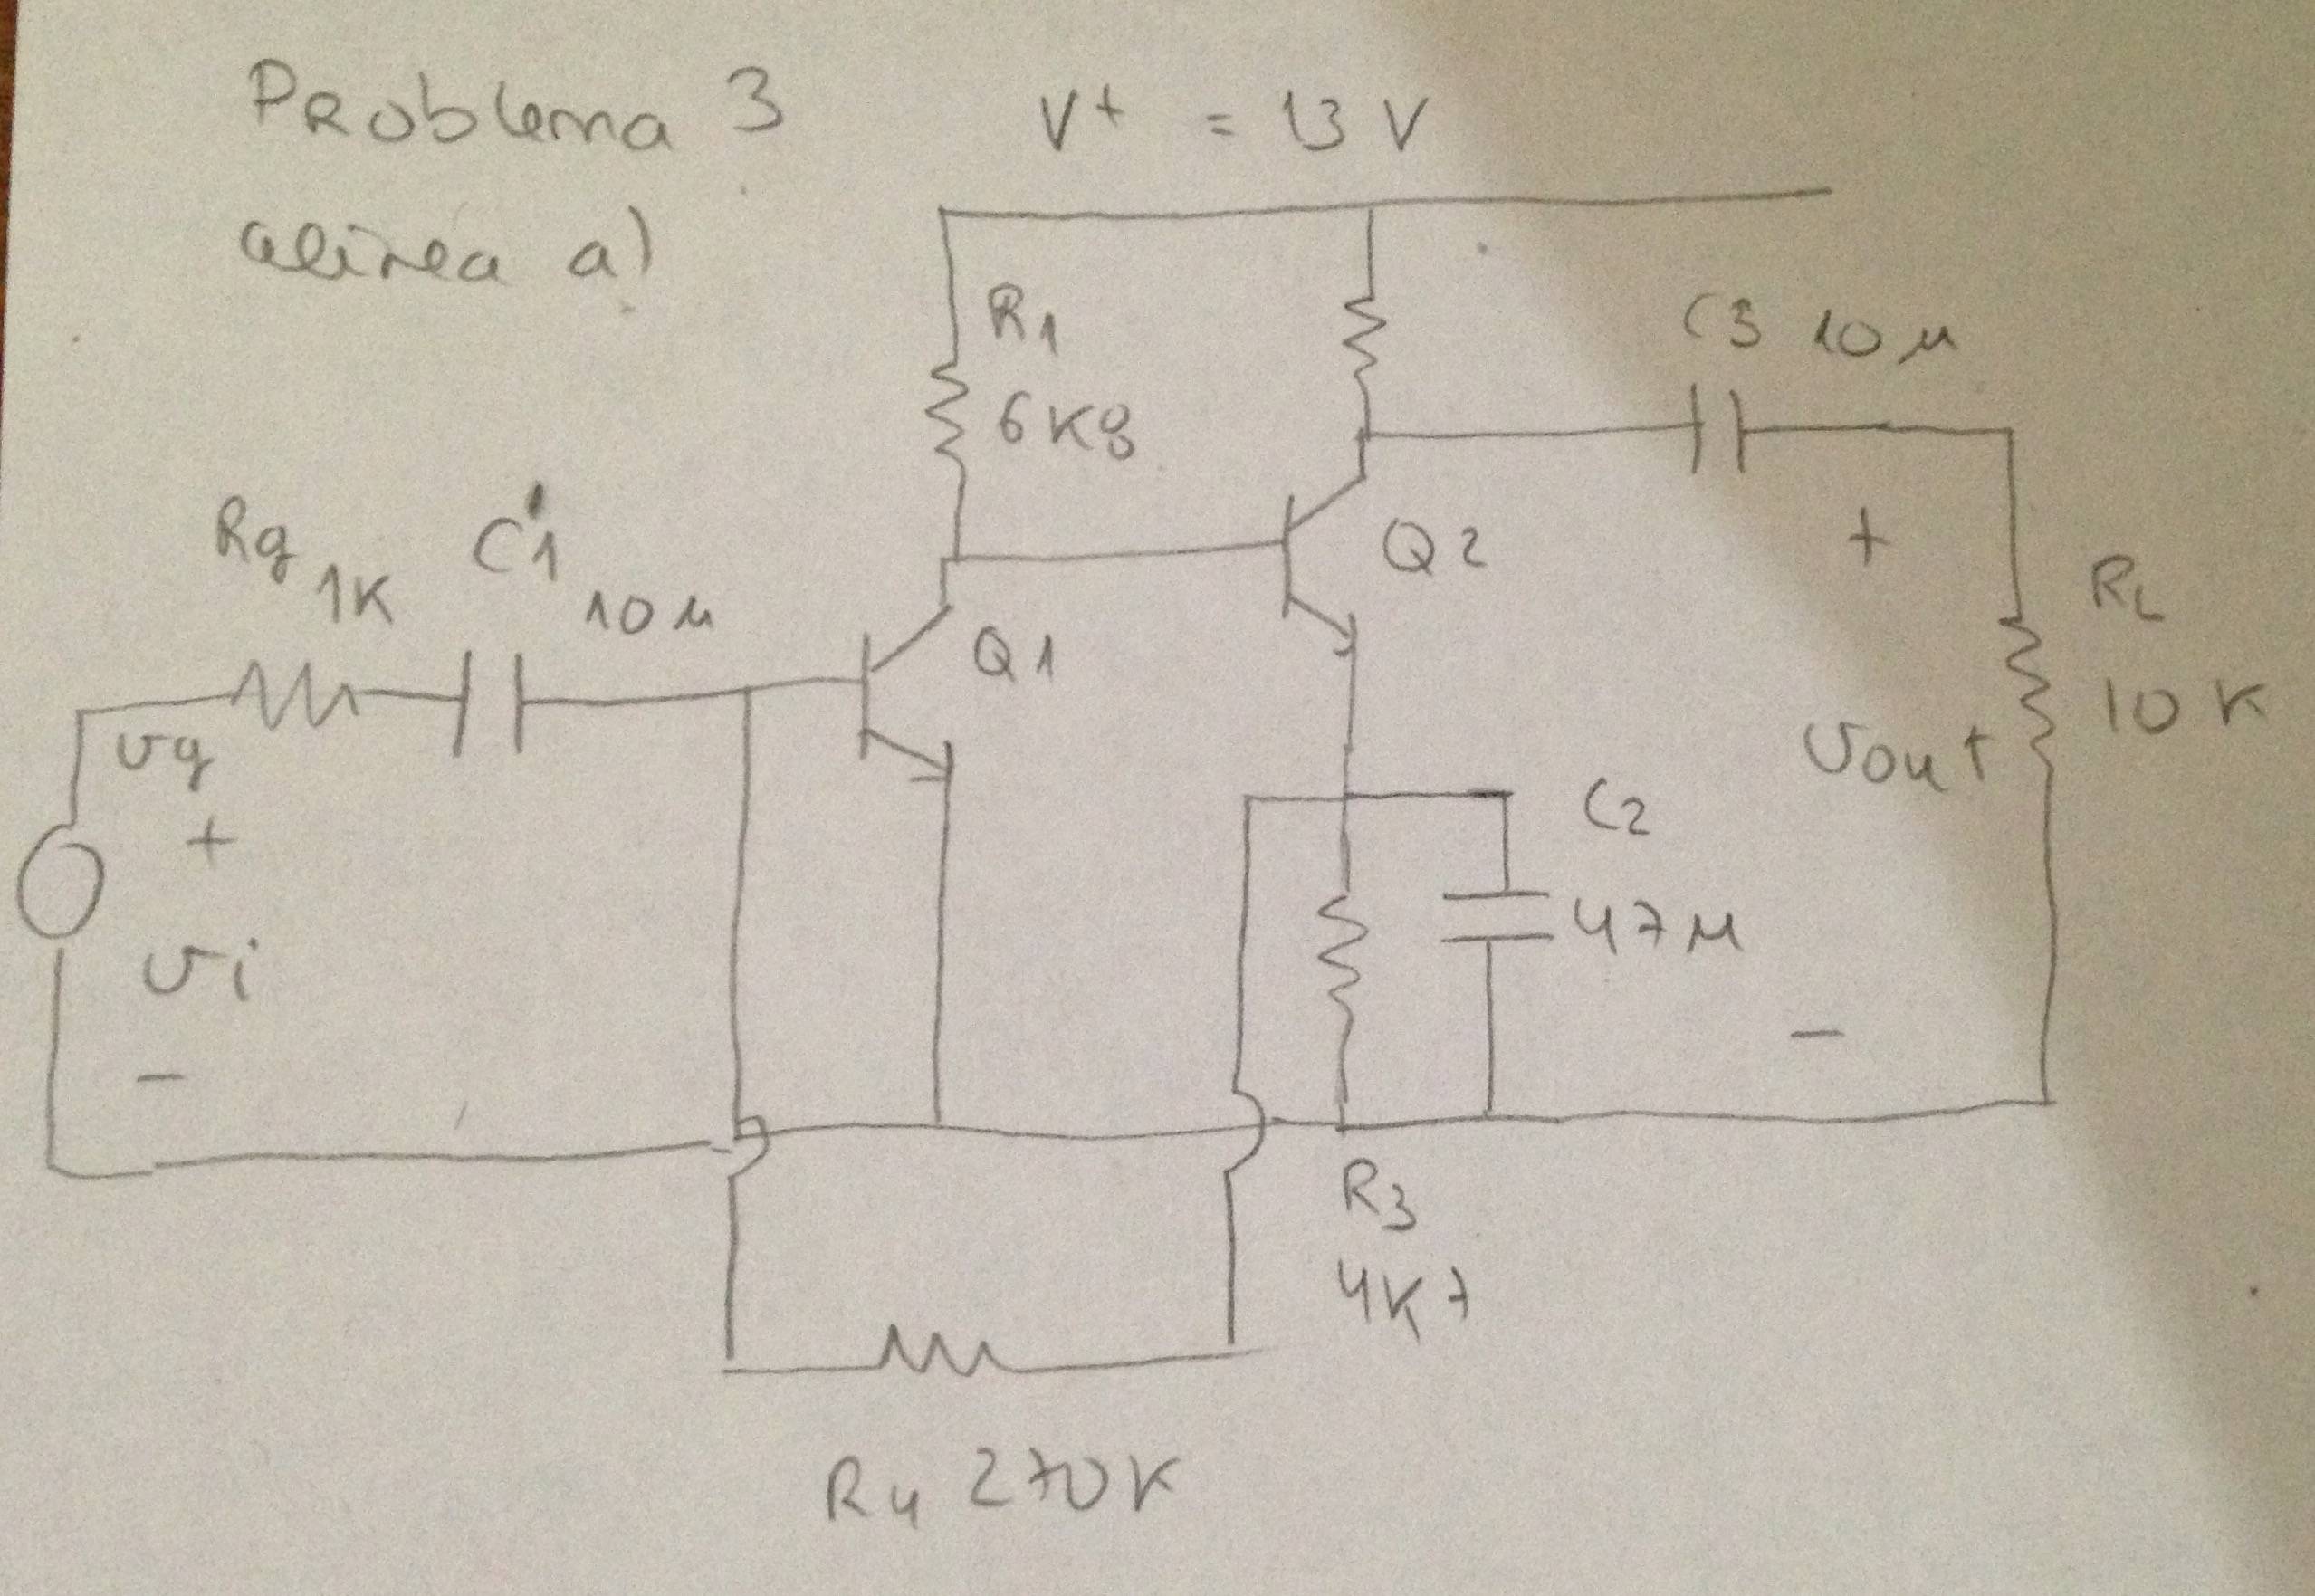 Problema 3
alinea a)
V+ = 13 V
R1
6K8
C3 10 µ
Rg 1K
C1 10 µ
Q1
Q2
+
RL
10 K
vg
+
vi
-
vout
-
C2
47 µ
R3
4K7
R4 270K